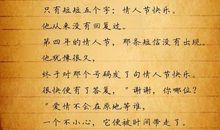 只有短短五个字：情人节快乐。
他从来没有回复过。
第四年的情人节，那条短信没有出现。
他犹豫很久，
终于对那个号码发了句情人节快乐。
很快便有了答复，“谢谢，你哪位？
”爱情不会在原地等谁，
一个不小心，它便被时间带走了。